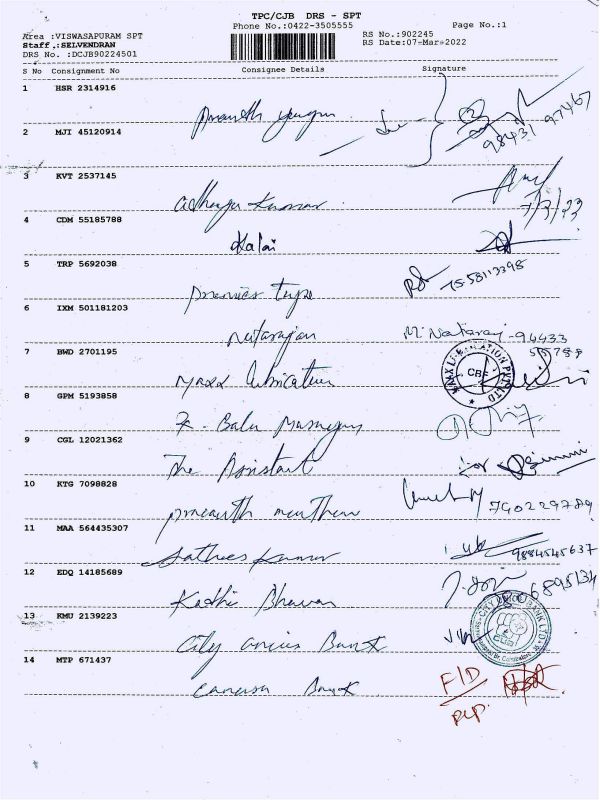 TPC/CJB DRS - SPT
Phone No.:0422-3505555 Page No.:1
Area :VISWASAPURAM SPT
RS No.:902245
Staff :SELVENDRAN
RS Date:07-Mar-2022
DRS No. :DCJB90224501
S No Consignment No Consignee Details Signature
1 HSR 2314916
97467
98431
2 MJI 45120914
3 KVT 2537145
4 CDM 55185788
Kalai
5 TRP 5692038
Premier type 7558113398
6 IXM 501181203
Natarajan M. Nataraj - 94433
7 BWD 2701195
Maxx lubrication CBE
8 GPM 5193858
9 CGL 12021362
The Assistant for
10 KTG 7098828
11 MAA 564435307
Sathees Kumar 9884545637
12 EDQ 14185689
Kadhi Bhavan 6895134
13 KMU 2139223
City union Bank
14 MTP 671437
Canara Bank F/D